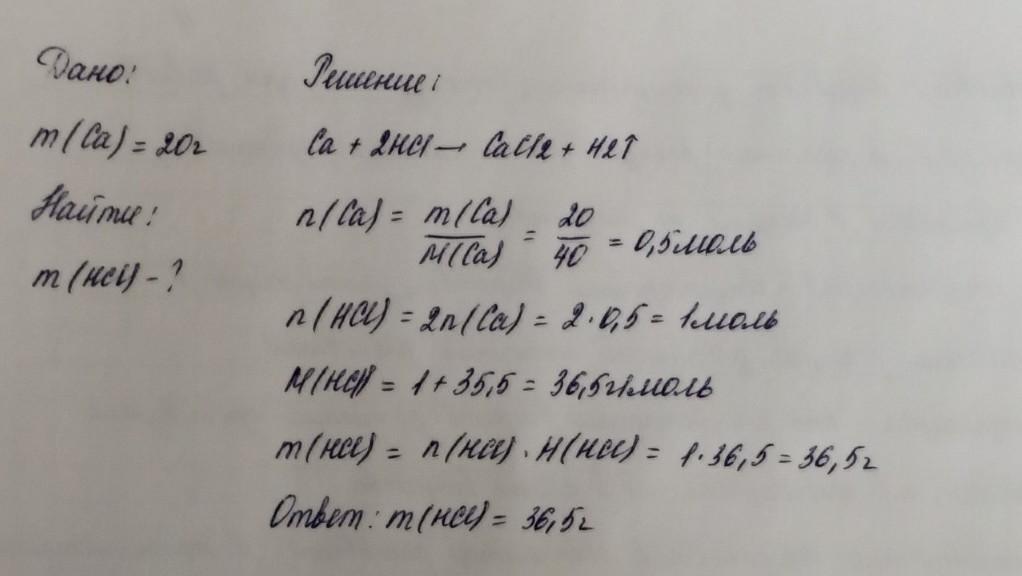 Дано:
m(Ca) = 20г
Найти:
m(HCl) - ?
Решение:
Ca + 2HCl → CaCl2 + H2↑
n(Ca) = m(Ca)/M(Ca) = 20/40 = 0,5моль
n(HCl) = 2n(Ca) = 2·0,5 = 1моль
M(HCl) = 1 + 35,5 = 36,5г/моль
m(HCl) = n(HCl)·M(HCl) = 1·36,5 = 36,5г
Ответ: m(HCl) = 36,5г